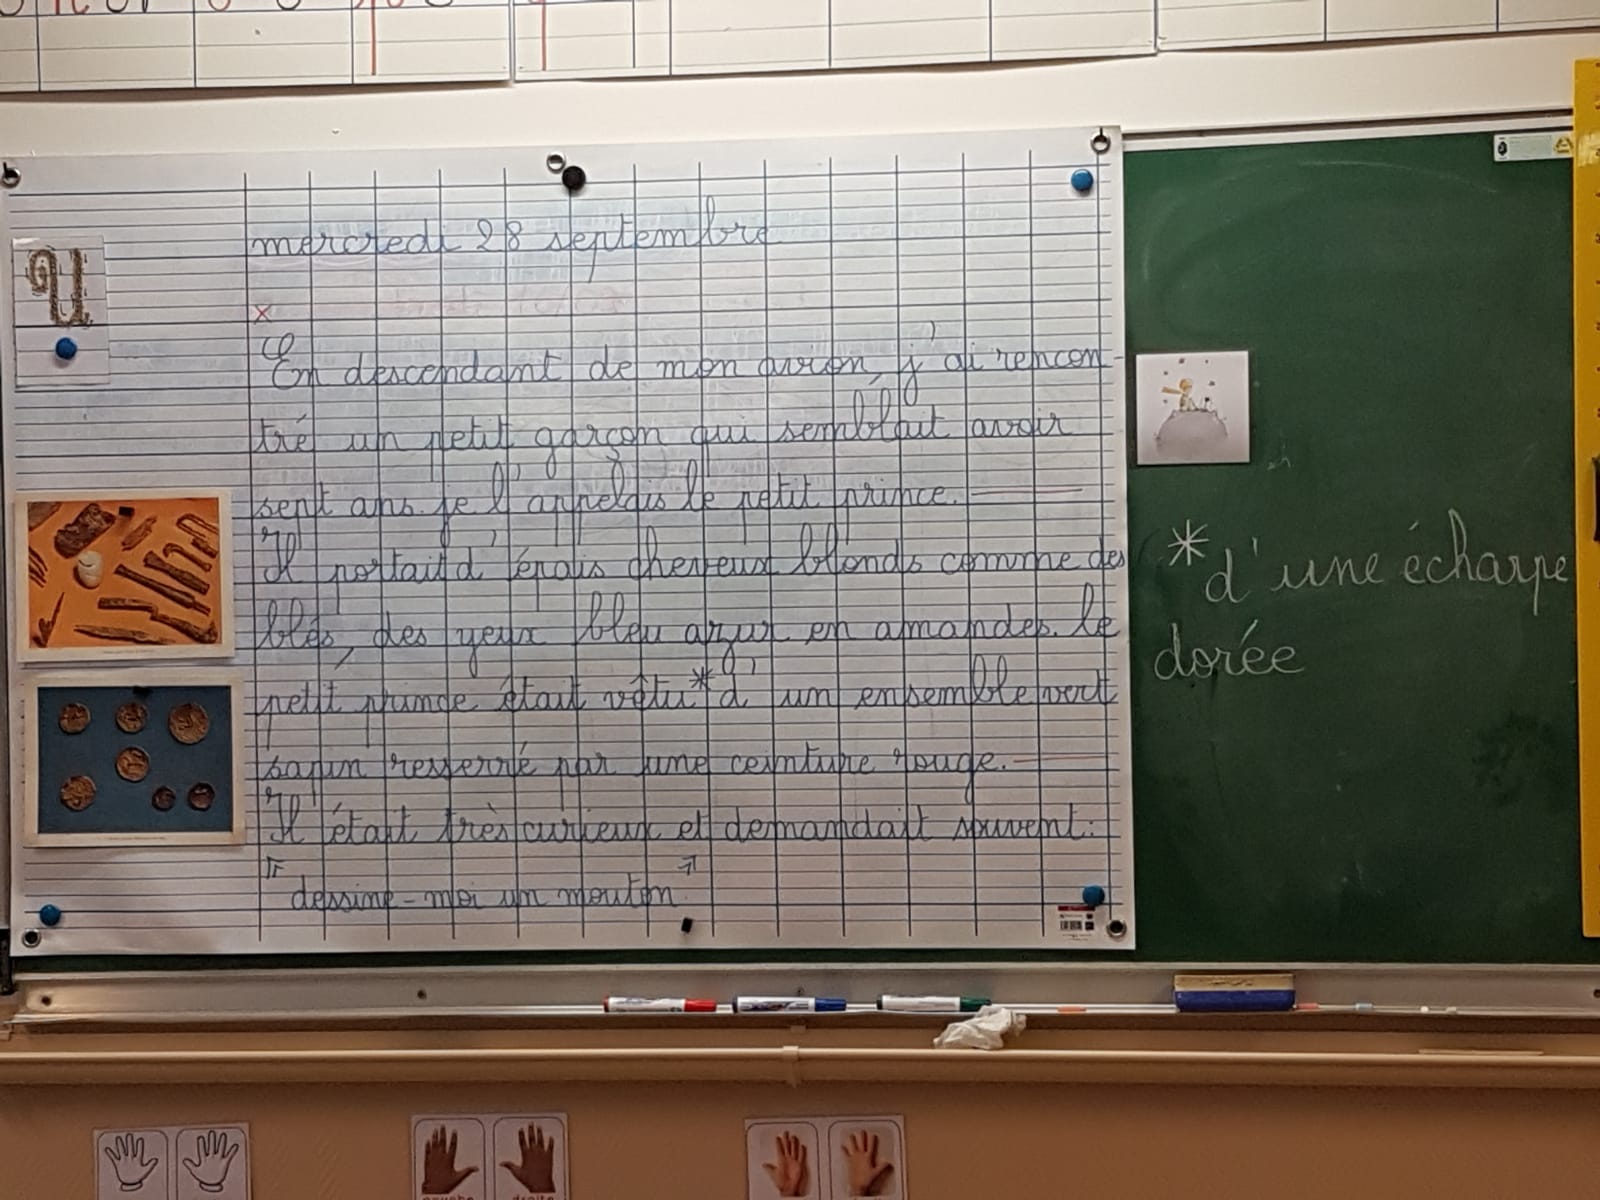 mercredi 28 septembre
x
En descendant de mon avion, j'ai rencon-
tré un petit garçon qui semblait avoir
sept ans. je l'appelais le petit prince.
Il portait d'épais cheveux blonds comme des
blés, des yeux bleu azur en amandes. le
petit prince était vêtu * d'un ensemble vert
sapin resserré par une ceinture rouge.
Il était très curieux et demandait souvent:
"dessine-moi un mouton"
* d'une écharpe
dorée